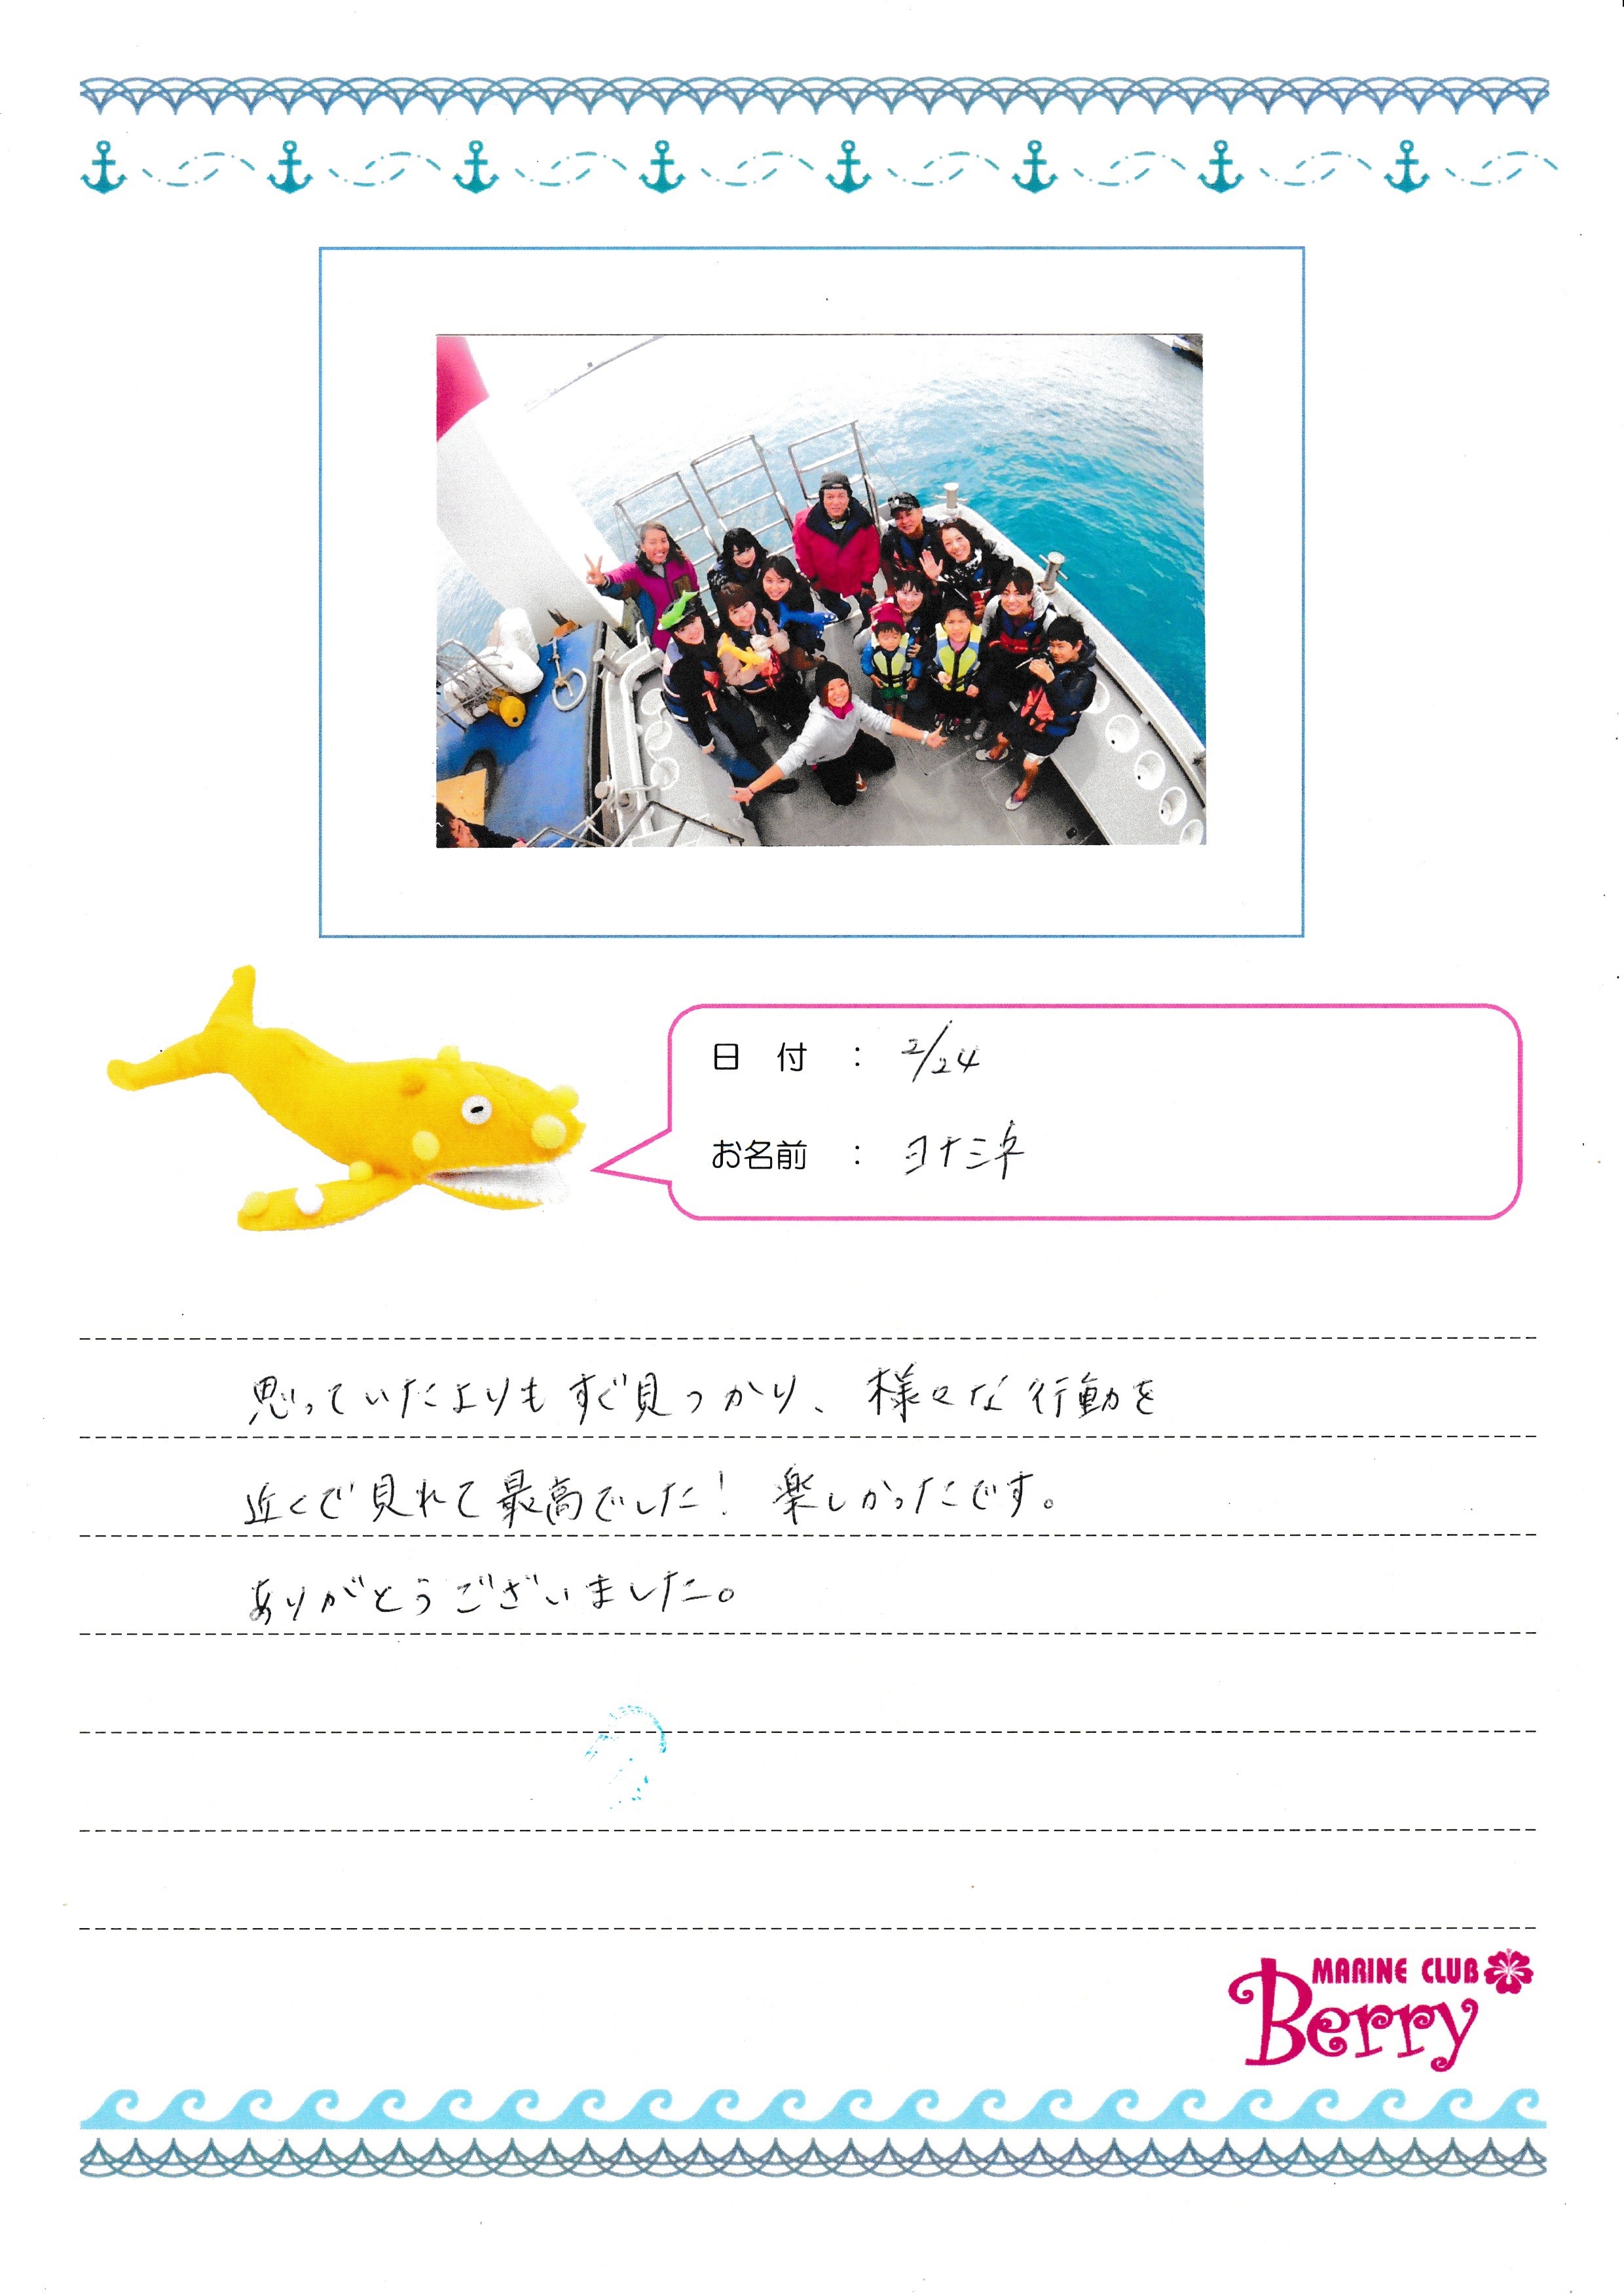 日 付 : 2/24
お名前 : ヨナミネ
思っていたよりもすぐ見つかり、様々な行動を
近くで見れて最高でした! 楽しかったです。
ありがとうございました。
MARINE CLUB
Berry